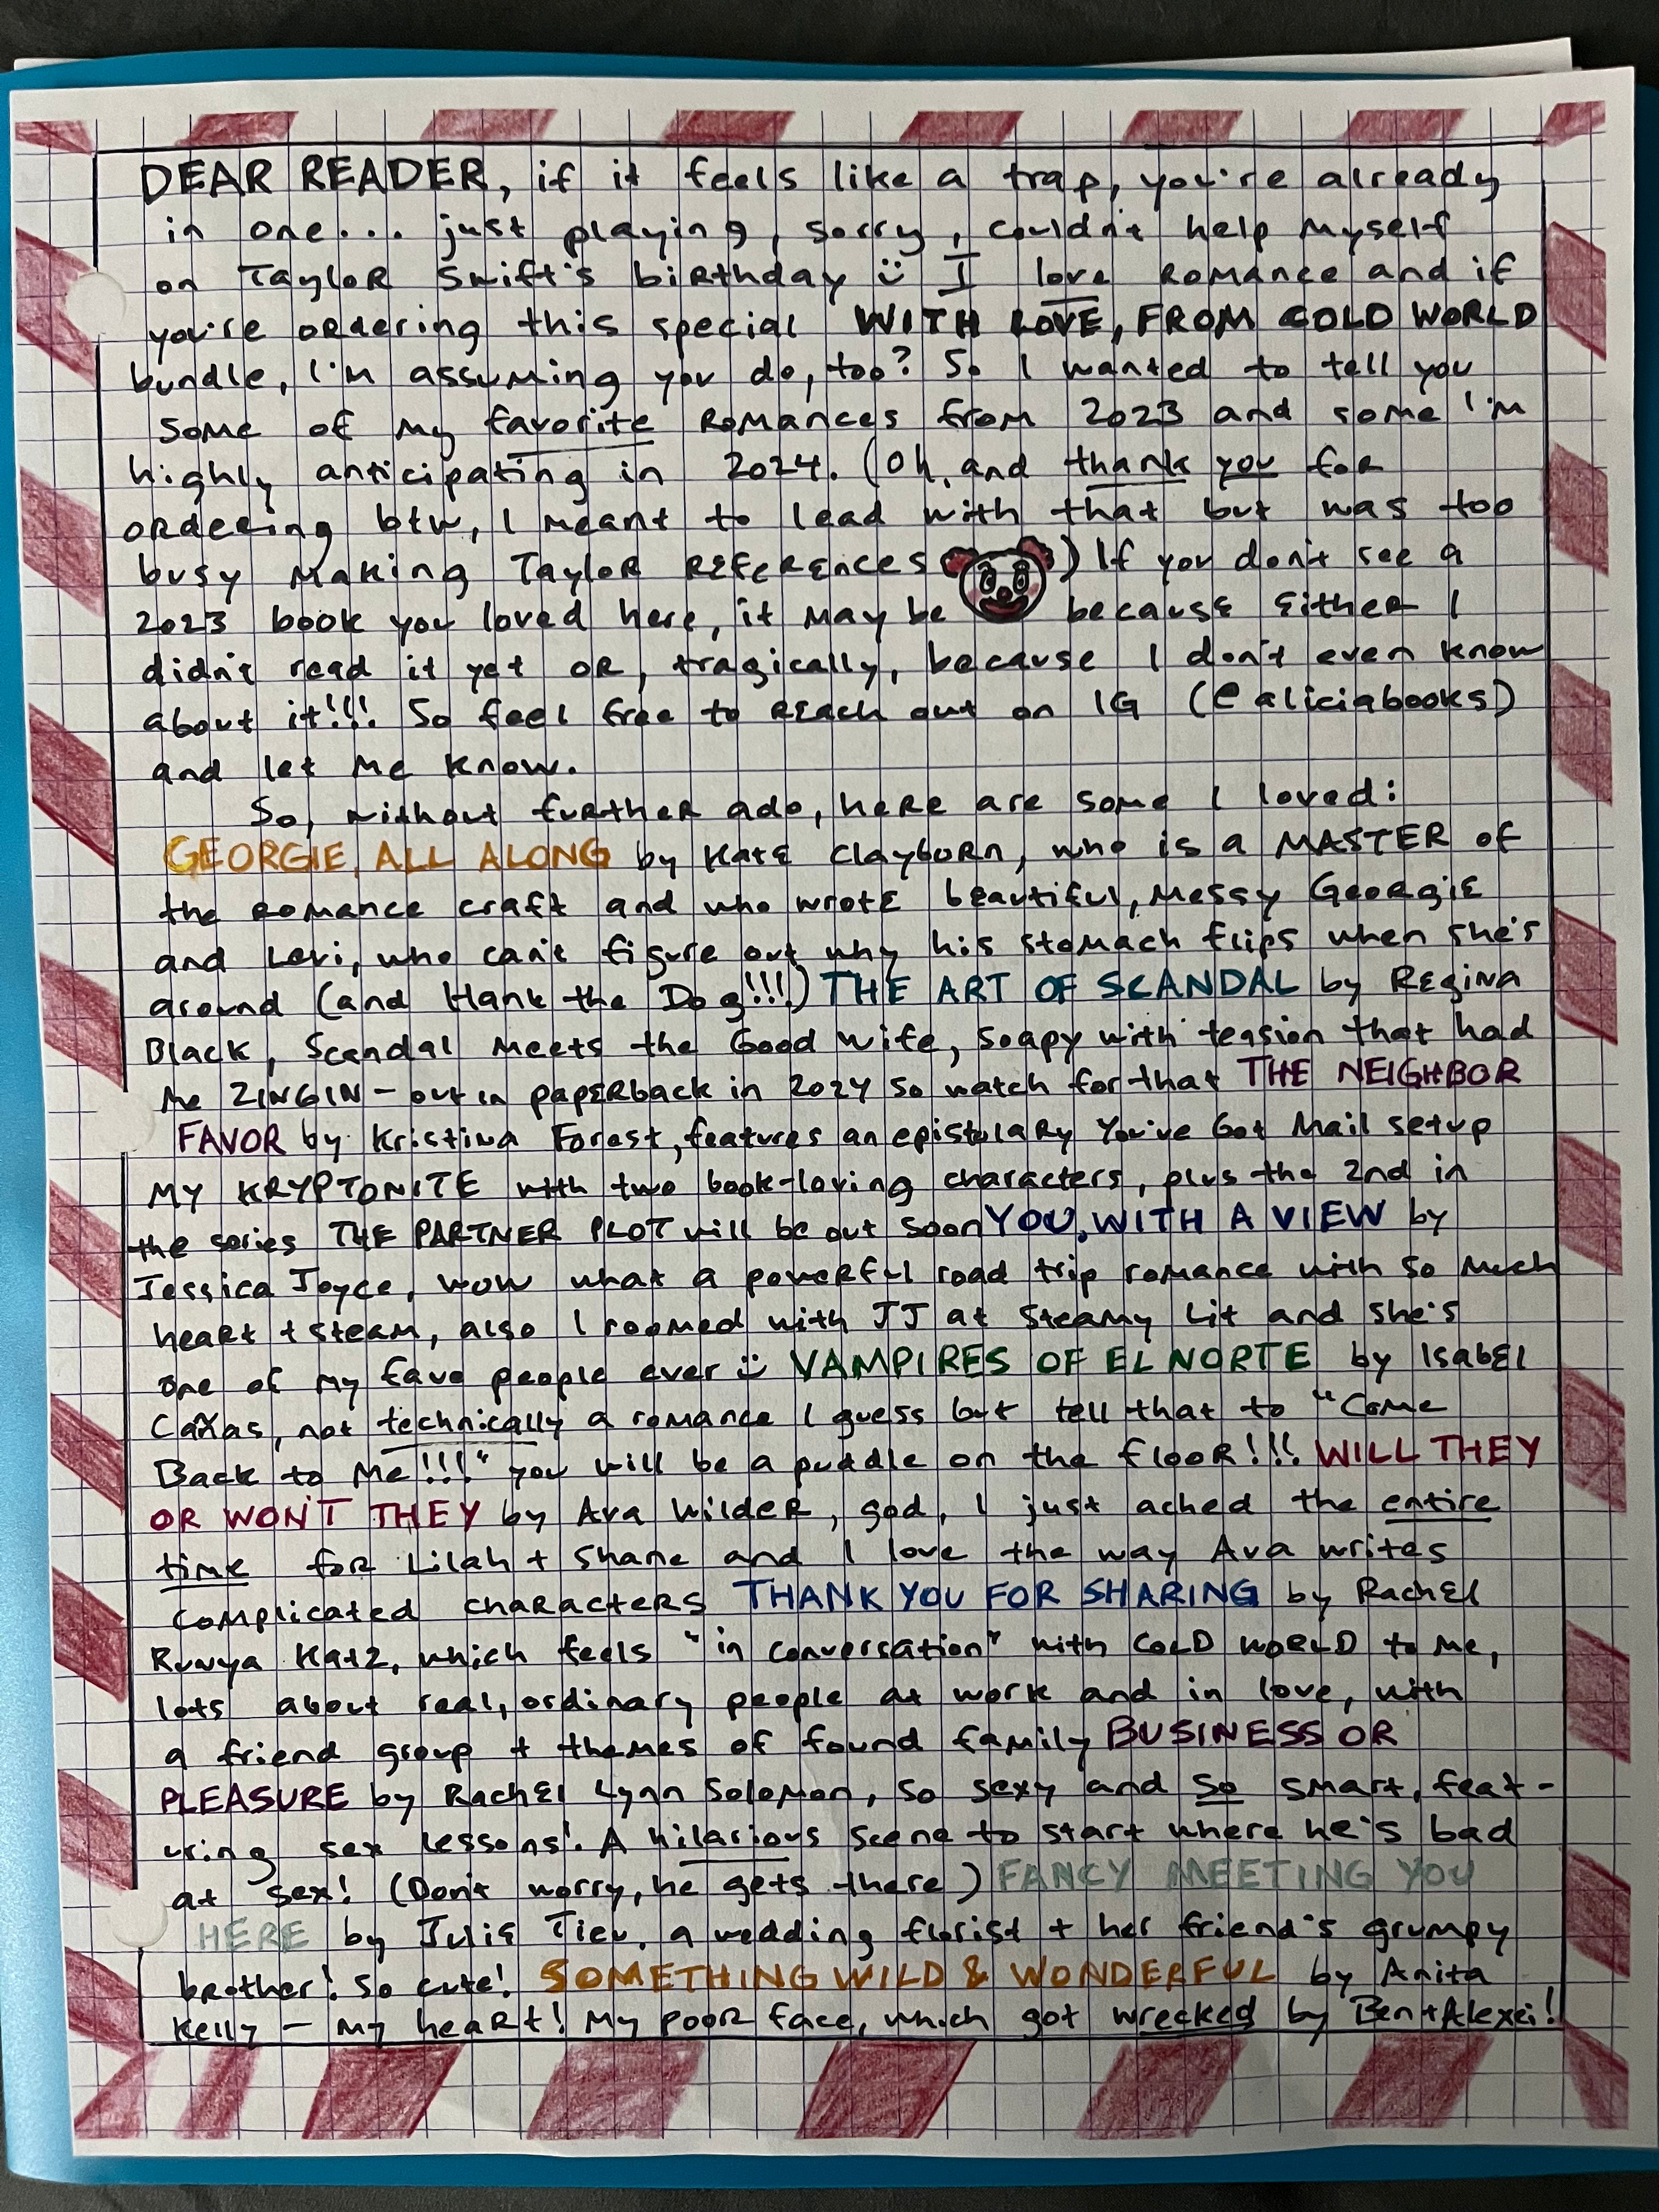 DEAR READER, if it feels like a trap, you're already
in one... just playing, sorry, couldn't help myself
on Taylor Swift's birthday :) I love romance and if
you're ordering this special WITH LOVE, FROM COLD WORLD
bundle, I'm assuming you do, too? So I wanted to tell you
some of my favorite romances from 2023 and some I'm
highly anticipating in 2024. (Oh, and thank you for
ordering btw, I meant to lead with that but was too
busy making Taylor references) If you don't see a
2023 book you loved here, it may be because either I
didn't read it yet OR, tragically, because I don't even know
about it!!! So feel free to reach out on IG (@aliciabooks)
and let me know.
So, without further ado, here are some I loved:
GEORGIE, ALL ALONG by Kate Clayborn, who is a MASTER of
the romance craft and who wrote beautiful, messy Georgie
and Levi, who can't figure out why his stomach flips when she's
around (and Hank the Dog!!!) THE ART OF SCANDAL by Regina
Black, Scandal meets the Good Wife, soapy with tension that had
me ZINGIN - out in paperback in 2024 so watch for that THE NEIGHBOR
FAVOR by Kristina Forest, features an epistolary You've Got Mail setup
MY KRYPTONITE with two book-loving characters, plus the 2nd in
the series THE PARTNER PLOT will be out soon YOU, WITH A VIEW by
Jessica Joyce, wow what a powerful road trip romance with so much
heart + steam, also I roomed with JJ at Steamy Lit and she's
one of my fave people ever :) VAMPIRES OF EL NORTE by Isabel
Cañas, not technically a romance I guess but tell that to "Come
Back to Me!!!" you will be a puddle on the floor!!! WILL THEY
OR WON'T THEY by Ava Wilder, god, I just ached the entire
time for Lilah + Shane and I love the way Ava writes
complicated characters THANK YOU FOR SHARING by Rachel
Runya Katz, which feels "in conversation" with COLD WORLD to me,
lots about real, ordinary people at work and in love, with
a friend group + themes of found family BUSINESS OR
PLEASURE by Rachel Lynn Solomon, so sexy and so smart, feat-
uring sex lessons! A hilarious scene to start where he's bad
at sex! (Don't worry, he gets there) FANCY MEETING YOU
HERE by Julie Tieu, a wedding florist + her friend's grumpy
brother! So cute! SOMETHING WILD & WONDERFUL by Anita
Kelly - my heart! My poor face, which got wrecked by Ben + Alexei!